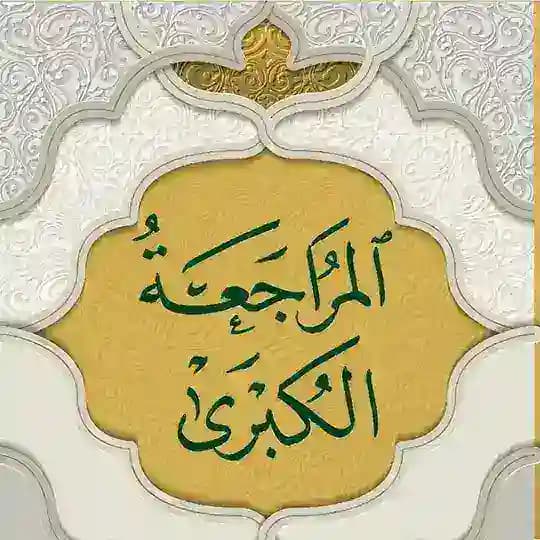 ٱلمُرَاجَعَةُ
الكُبْرَىٰ